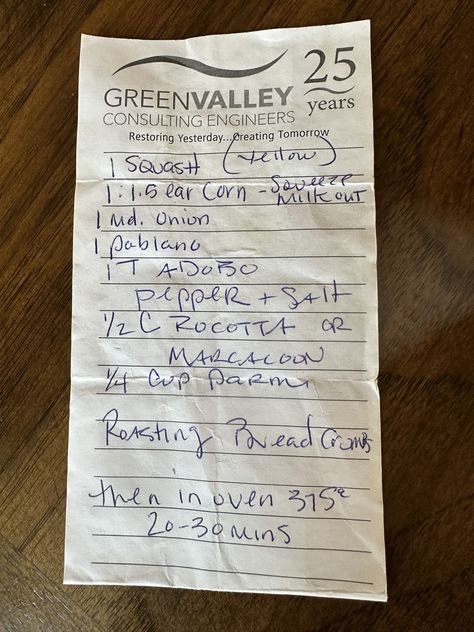 25
years
GREENVALLEY
CONSULTING ENGINEERS
Restoring Yesterday...Creating Tomorrow
1 SQUASH (Yellow)
1:1.5 ear Corn - Squeeze
Milk out
1 Md. Onion
1 pablano
1 T ADOBO
pepper + Salt
1/2 C ROCOTTA OR
MARCACOON
1/4 Cup parm
Roasting Bread Crumbs
then in oven 375°
20-30 mins